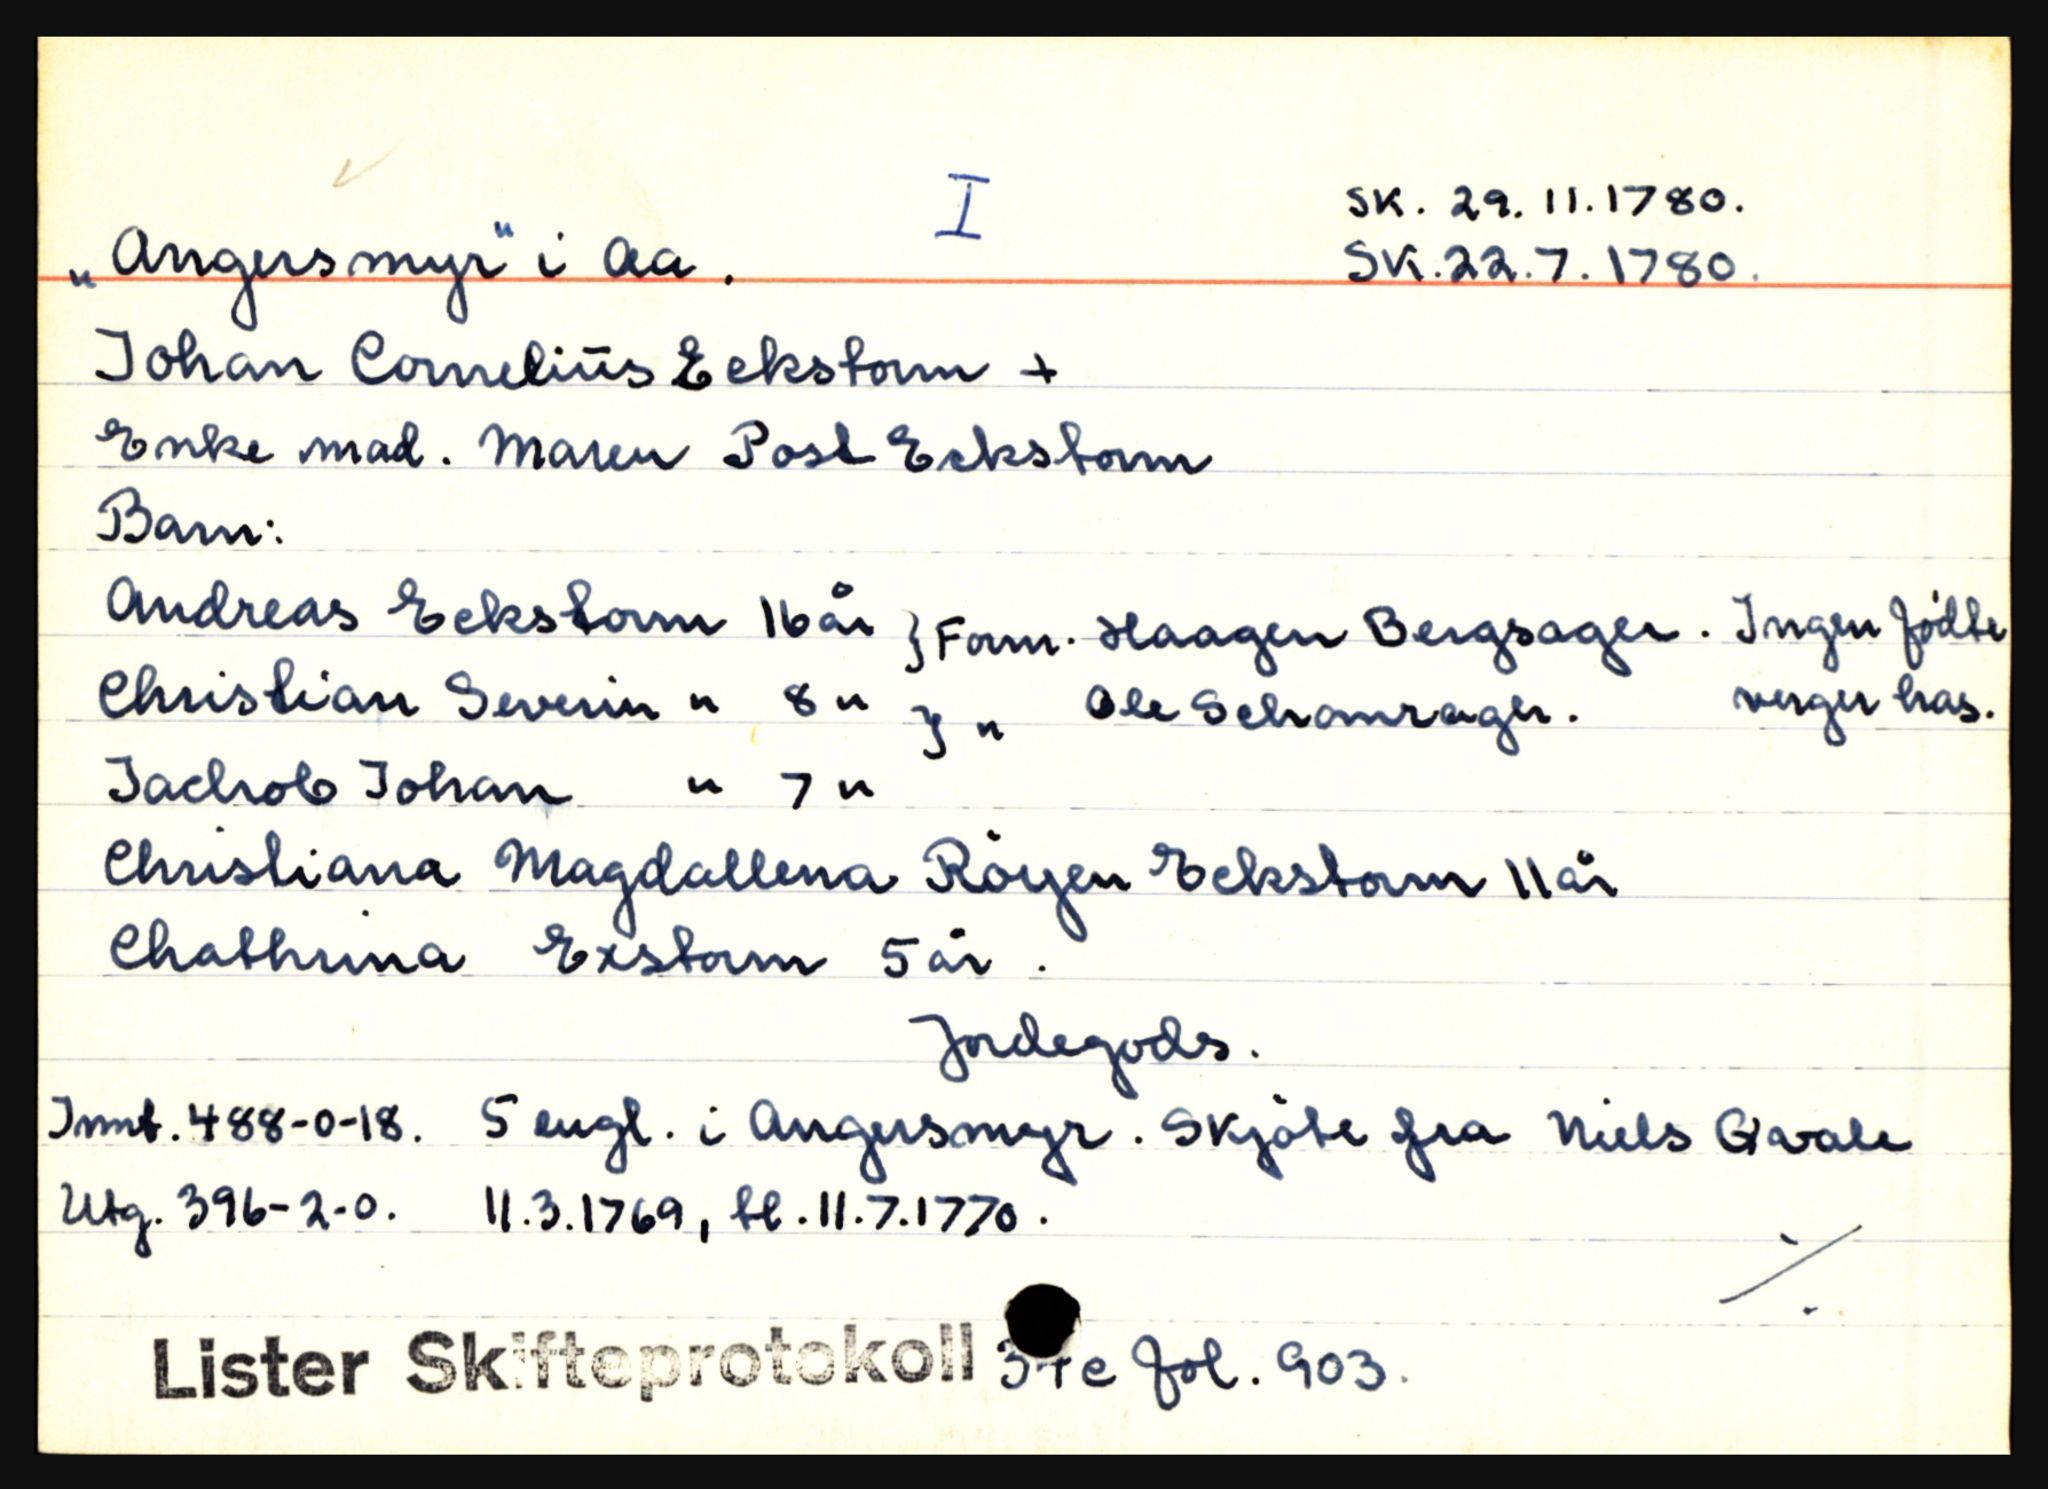 I
SK. 29. 11. 1780.
„Angersmyr" i Aa.
SK. 22. 7. 1780.
Johan Cornelius Eckstorm +
Enke mad. Maren Post Eckstorm
Barn:
Andreas Eckstorm 16 år } Form. Haagen Bergsager. Ingen fødte
Christian Severin " 8 " } " Ole Schomrager. verger has.
Jachob Johan " 7 "
Christiana Magdallena Röyen Eckstorm 11 år
Chathrina Exstorm 5 år.
Jordegods.
Innt. 488-0-18. 5 eugl. i Angersmyr. Skjöte fra Niels Qvale
Utg. 396-2-0. 11.3.1769, tl. 11.7.1770.
./.
Lister Skifteprotokoll 34c fol. 903.